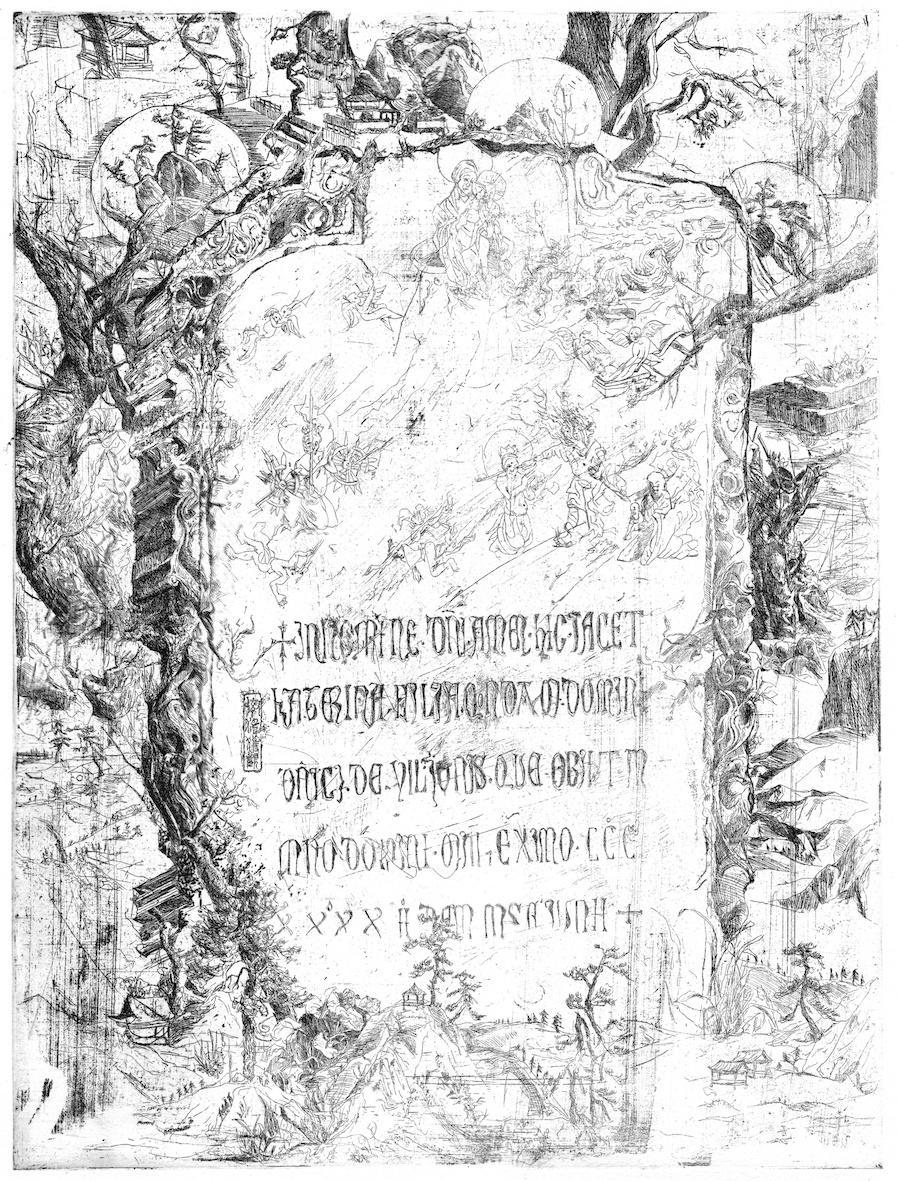 ✝ IN NOMINE · DNI AMEN · HIC JACET
KATERINA · FILIA · QONDAM · DOMINI
DNICI · DE · VILIONIS · QUE · OBIIT IN
ANNO · DOMINI · MILEXIMO · CCC
XXXX II DE MENSE JUNII +